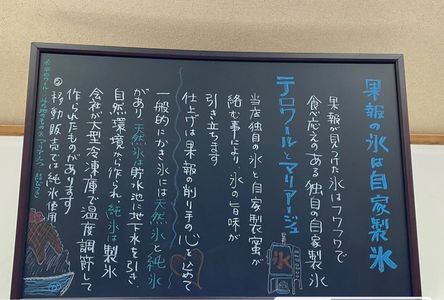 果報の氷は自家製氷
果報が見つけた氷はフワフワで
食べ応えのある独自の自家製氷
テロワールとマリアージュ
氷
当店独自の氷と自家製蜜が
絡む事により氷の旨味が
引き立ちます
仕上げは果報の削り手の心を込めて
一般的にかき氷には天然氷と純氷
があり天然氷は貯水池に地下水を引き、
自然環境から作られ純氷は製氷
会社が大型冷凍庫で温度調節して
作られたものがあります
移動販売では純氷使用